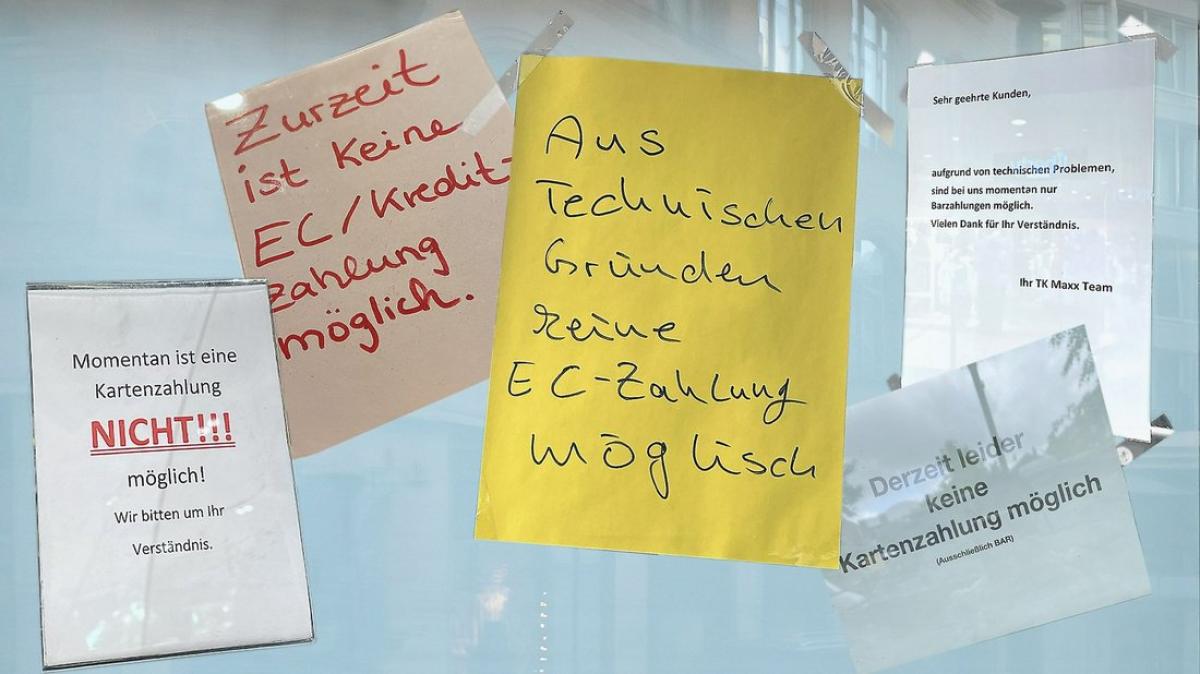 Momentan ist eine
Kartenzahlung
NICHT!!!
möglich!
Wir bitten um Ihr
Verständnis.
Zurzeit
ist keine
EC/Kredit-
zahlung
möglich.
Aus
Technischen
Gründen
keine
EC-Zahlung
möglisch
Sehr geehrte Kunden,
aufgrund von technischen Problemen,
sind bei uns momentan nur
Barzahlungen möglich.
Vielen Dank für Ihr Verständnis.
Ihr TK Maxx Team
Derzeit leider
keine
Kartenzahlung möglich
(Ausschließlich BAR)